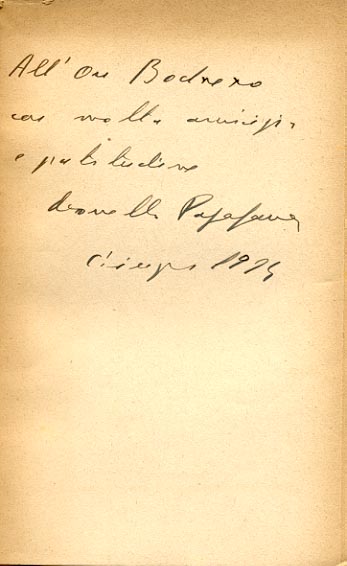 All'On Bodrero
con molta amicizia
e gratitudine
Novello Papafava
Giugno 1924